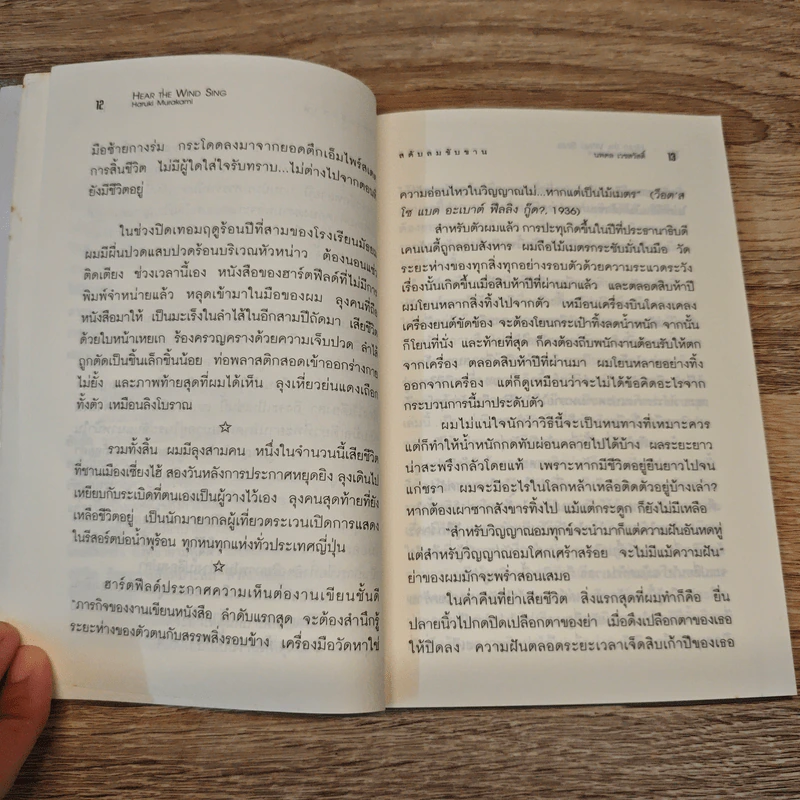 12
HEAR THE WIND SING
Haruki Murakami
มือซ้ายกางร่ม กระโดดลงมาจากยอดตึกเอ็มไพร์สเตต
การสิ้นชีวิต ไม่มีผู้ใดใส่ใจรับทราบ...ไม่ต่างไปจากตอนที่
ยังมีชีวิตอยู่
ในช่วงปิดเทอมฤดูร้อนปีที่สามของโรงเรียนมัธยม
ผมมีผื่นปวดแสบปวดร้อนบริเวณหัวหน่าว ต้องนอนแซ่ว
ติดเตียง ช่วงเวลานี้เอง หนังสือของฮาร์ตฟีลด์ที่ไม่มีการ
พิมพ์จำหน่ายแล้ว หลุดเข้ามาในมือของผม ลุงคนที่ถือ
หนังสือมาให้ เป็นมะเร็งในลำไส้ในอีกสามปีถัดมา เสียชีวิต
ด้วยใบหน้าเหยเก ร้องครวญครางด้วยความเจ็บปวด ลำไส้
ถูกตัดเป็นชิ้นเล็กชิ้นน้อย ท่อพลาสติกสอดเข้าออกร่างกาย
ไม่ยั้ง และภาพท้ายสุดที่ผมได้เห็น ลุงเหี่ยวย่นแดงเถือก
ทั้งตัว เหมือนลิงโบราณ
☆
รวมทั้งสิ้น ผมมีลุงสามคน หนึ่งในจำนวนนี้เสียชีวิต
ที่ชานเมืองเซี่ยงไฮ้ สองวันหลังการประกาศหยุดยิง ลุงเดินไป
เหยียบกับระเบิดที่ตนเองเป็นผู้วางไว้เอง ลุงคนสุดท้ายที่ยัง
เหลือชีวิตอยู่ เป็นนักมายากลผู้เที่ยวตระเวนเปิดการแสดง
ในรีสอร์ตบ่อน้ำพุร้อน ทุกหนทุกแห่งทั่วประเทศญี่ปุ่น
☆
ฮาร์ตฟีลด์ประกาศความเห็นต่องานเขียนชั้นดี
"ภารกิจของงานเขียนหนังสือ ลำดับแรกสุด จะต้องสำนึกรู้
ระยะห่างของตัวตนกับสรรพสิ่งรอบข้าง เครื่องมือวัดหาใช่
สดับลมขับขาน
นพดล เวชสวัสดิ์
13
ความอ่อนไหวในวิญญาณไม่...หากแต่เป็นไม้เมตร" (ว็อต'ส
โซ แบด อะเบาต์ ฟีลลิง กู๊ด?, 1936)
สำหรับตัวผมแล้ว การปะทุเกิดขึ้นในปีที่ประธานาธิบดี
เคนเนดี้ถูกลอบสังหาร ผมถือไม้เมตรกระชับมั่นในมือ วัด
ระยะห่างของทุกสิ่งทุกอย่างรอบตัวด้วยความระแวดระวัง
เรื่องนั้นเกิดขึ้นเมื่อสิบห้าปีที่ผ่านมาแล้ว และตลอดสิบห้าปี
ผมโยนหลากสิ่งทิ้งไปจากตัว เหมือนเครื่องบินโคลงเคลง
เครื่องยนต์ขัดข้อง จะต้องโยนกระเป๋าทิ้งลดน้ำหนัก จากนั้น
ก็โยนที่นั่ง และท้ายที่สุด ก็คงต้องถีบพนักงานต้อนรับให้ตก
จากเครื่อง ตลอดสิบห้าปีที่ผ่านมา ผมโยนหลายอย่างทิ้ง
ออกจากเครื่อง แต่ก็ดูเหมือนว่าจะไม่ได้ข้อคิดอะไรจาก
กระบวนการนี้มาประดับตัว
ผมไม่แน่ใจนักว่าวิธีนี้จะเป็นหนทางที่เหมาะควร
แต่ก็ทำให้น้ำหนักกดทับผ่อนคลายไปได้บ้าง ผลระยะยาว
น่าสะพรึงกลัวโดยแท้ เพราะหากมีชีวิตอยู่ยืนยาวไปจน
แก่ชรา ผมจะมีอะไรในโลกหล้าเหลือติดตัวอยู่บ้างเล่า?
หากต้องเผาซากสังขารทิ้งไป แม้แต่กระดูก ก็ยังไม่มีเหลือ
"สำหรับวิญญาณอมทุกข์จะนำมาก็แต่ความฝันอันหดหู่
แต่สำหรับวิญญาณอมโศกเศร้าสร้อย จะไม่มีแม้ความฝัน"
ย่าของผมมักจะพร่ำสอนเสมอ
ในค่ำคืนที่ย่าเสียชีวิต สิ่งแรกสุดที่ผมทำก็คือ ยื่น
ปลายนิ้วไปกดปิดเปลือกตาของย่า เมื่อดึงเปลือกตาของเธอ
ให้ปิดลง ความฝันตลอดระยะเวลาเจ็ดสิบเก้าปีของเธอ